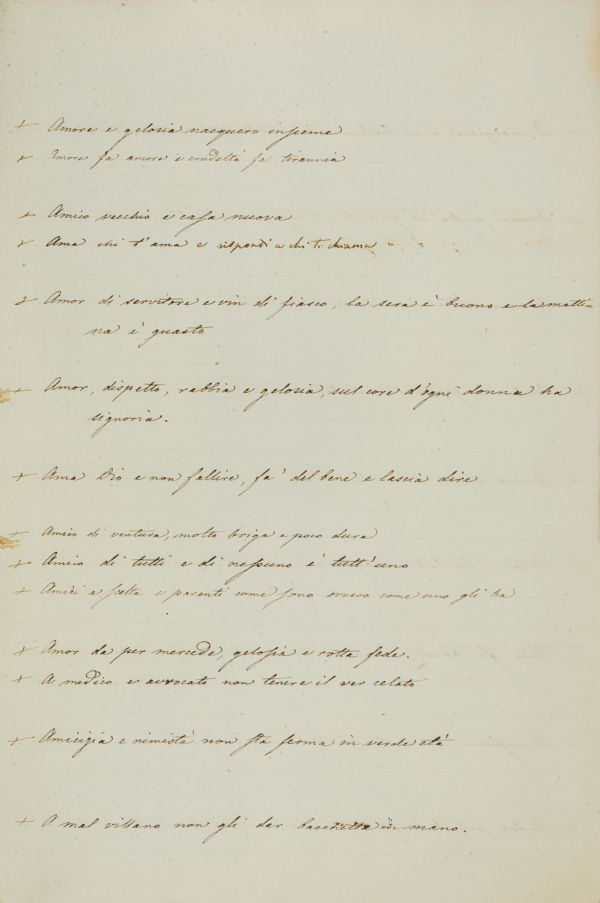 + Amore e gelosia nacquero insieme
+ Amore fa amore e crudeltà fa tirannia
+ Amico vecchio e casa nuova
+ Ama chi t'ama e rispondi a chi ti chiama " " "
+ Amor di servitore e vin di fiasco, la sera è buono e la matti=
na è guasto
+ Amor, dispetto, rabbia e gelosia, sul core d'ogni donna ha
signoria.
+ Ama Dio e non fallire, fa' del bene e lascia dire
+ Amico di ventura, molto briga e poco dura
+ Amico di tutti e di nessuno è tutt'uno
+ Amici a scelta e parenti come sono ovvero come uno gli ha
+ Amor da per mercede, gelosia e rotta fede.
+ A medico e avvocato non tenere il ver celato
+ Amicizia e nimistà non sta ferma in verde età
+ A mal villano non gli dar bacchetta in mano.